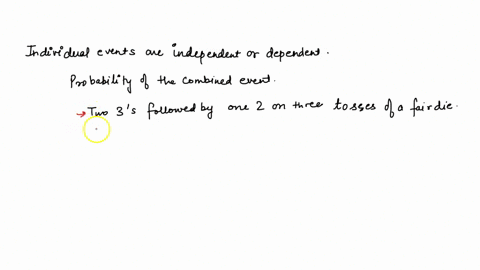 Individual events are independent or dependent.
Probability of the combined event.
→ Two 3's followed by one 2 on three tosses of a fair die.